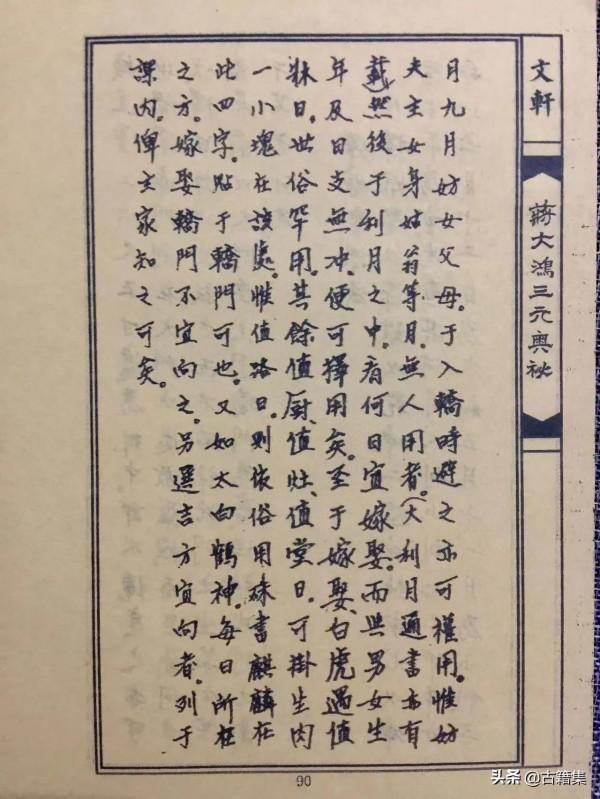 文軒
蔣大鴻三元奧秘
月九月妨女父母。于入轎時避之亦可權用。惟妨
夫主女身姑翁等月。無人用者。(大利月通書亦有
載)然後于利月之中。看何日宜嫁娶。而與男女生
年及日支無冲。便可擇用矣。至于嫁娶白虎遇值
牀日。世俗罕用。其餘值厨、值灶、值堂日。可掛生肉
一小塊在該處。惟值路日。則依俗用硃書麒麟在
此四字。貼于轎門可也。又如太白鶴神。每日所在
之方。嫁娶轎門不宜向之。另選吉方宜向者。列于
課內。俾主家知之可矣。
90
头条 @古籍集